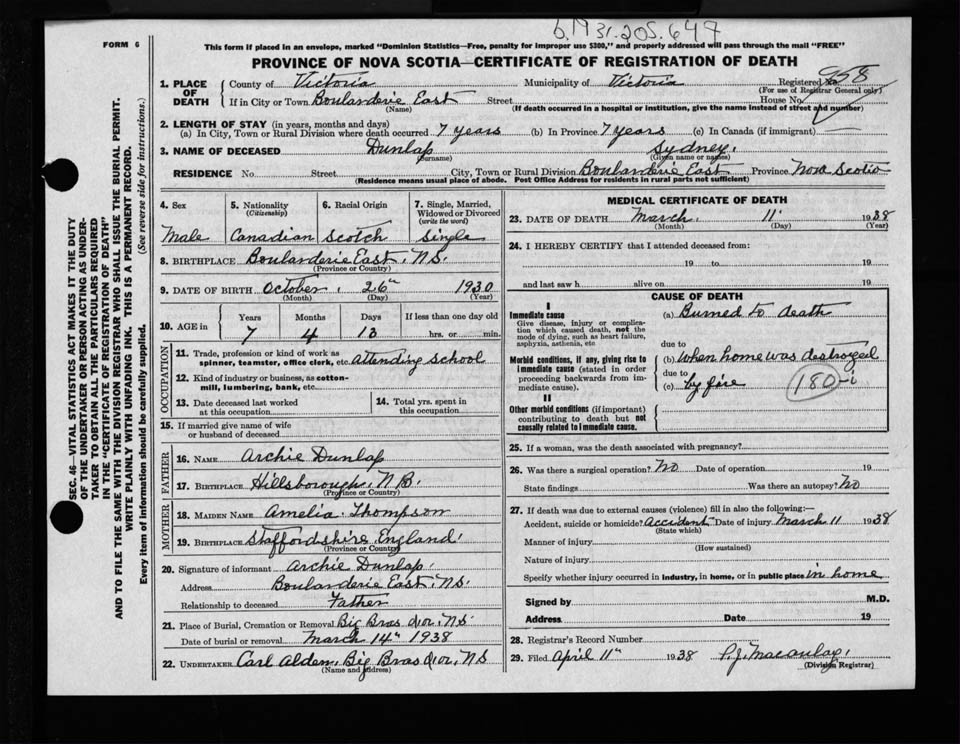 b.1931.205.647
FORM 6
This form if placed in an envelope, marked "Dominion Statistics—Free, penalty for improper use $300," and properly addressed will pass through the mail "FREE"
PROVINCE OF NOVA SCOTIA—CERTIFICATE OF REGISTRATION OF DEATH
SEC. 46—VITAL STATISTICS ACT MAKES IT THE DUTY
OF THE UNDERTAKER OR PERSON ACTING AS UNDER-
TAKER TO OBTAIN ALL THE PARTICULARS REQUIRED
IN THE "CERTIFICATE OF REGISTRATION OF DEATH"
AND TO FILE THE SAME WITH THE DIVISION REGISTRAR WHO SHALL ISSUE THE BURIAL PERMIT.
WRITE PLAINLY WITH UNFADING INK. THIS IS A PERMANENT RECORD.
Every item of information should be carefully supplied. (See reverse side for instructions.)
1. PLACE OF DEATH
County of Victoria Municipality of Victoria Registered No. 958
(For use of Registrar General only)
If in City or Town Boularderie East Street House No.
(Name) (If death occurred in a hospital or institution, give the name instead of street and number)
2. LENGTH OF STAY (in years, months and days)
(a) In City, Town or Rural Division where death occurred 7 years (b) In Province 7 years (c) In Canada (if immigrant)
3. NAME OF DECEASED Dunlap Sydney.
(Surname) (Given name or names)
RESIDENCE No. Street City, Town or Rural Division Boularderie East Province Nova Scotia
(Residence means usual place of abode. Post Office Address for residents in rural parts not sufficient)
4. Sex
Male
5. Nationality
(Citizenship)
Canadian
6. Racial Origin
Scotch
7. Single, Married,
Widowed or Divorced
(write the word)
Single
8. BIRTHPLACE Boularderie East, N.S.
(Province or Country)
9. DATE OF BIRTH October, 26th 1930
(Month) (Day) (Year)
10. AGE in
Years Months Days If less than one day old
7 4 13 hrs. or min.
OCCUPATION
11. Trade, profession or kind of work as
spinner, teamster, office clerk, etc. Attending School
12. Kind of industry or business, as cotton-
mill, lumbering, bank, etc.
13. Date deceased last worked
at this occupation
14. Total yrs. spent in
this occupation
15. If married give name of wife
or husband of deceased
FATHER
16. NAME Archie Dunlap
17. BIRTHPLACE Hillsborough, N.B.
(Province or Country)
MOTHER
18. MAIDEN NAME Amelia Thompson
19. BIRTHPLACE Staffordshire, England
(Province or Country)
20. Signature of informant Archie Dunlap
Address Boularderie East, N.S.
Relationship to deceased Father
21. Place of Burial, Cremation or Removal Big Bras d'or, N.S.
Date of burial or removal March 14th 1938
22. UNDERTAKER Carl Alden, Big Bras d'or, N.S
(Name and address)
MEDICAL CERTIFICATE OF DEATH
23. DATE OF DEATH March 11 1938
(Month) (Day) (Year)
24. I HEREBY CERTIFY that I attended deceased from:
19 to 19
and last saw h alive on 19
CAUSE OF DEATH
I
Immediate cause
Give disease, injury or complica-
tion which caused death, not the
mode of dying, such as heart failure,
asphyxia, asthenia, etc
(a) Burned to death
due to
Morbid conditions, if any, giving rise to
immediate cause (stated in order
proceeding backwards from im-
mediate cause).
(b) When home was destroyed
due to
(c) by fire
180-i
II
Other morbid conditions (if important)
contributing to death but not
causally related to immediate cause.
25. If a woman, was the death associated with pregnancy?
26. Was there a surgical operation? No Date of operation 19
State findings Was there an autopsy? No
27. If death was due to external causes (violence) fill in also the following:
Accident, suicide or homicide? Accident Date of injury March 11 1938
(State which)
Manner of injury
(How sustained)
Nature of injury
Specify whether injury occurred in industry, in home, or in public place in home
Signed by M.D.
Address Date 19
28. Registrar's Record Number
29. Filed April 11th 1938 P.J. Macaulay.
(Division Registrar)